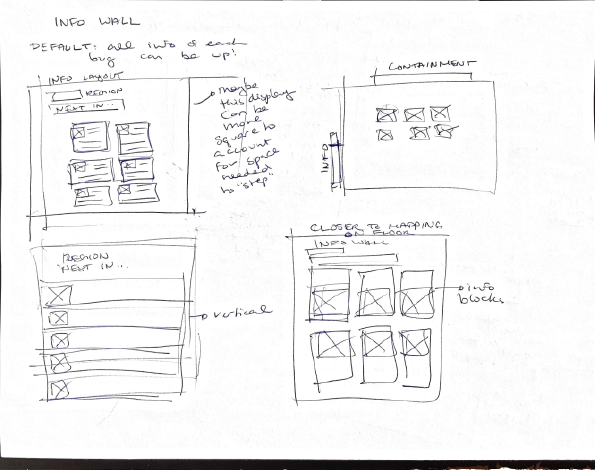 INFO WALL
DEFAULT: all info of each
bug can be up!
INFO LAYOUT
REGION
NEXT IN...
maybe
this display
can be
more
square to
account
for space
needed
to "step"
CONTAINMENT
INFO
REGION
NEXT IN...
vertical
CLOSER TO MAPPING
ON FLOOR
INFO WALL
info
blocks